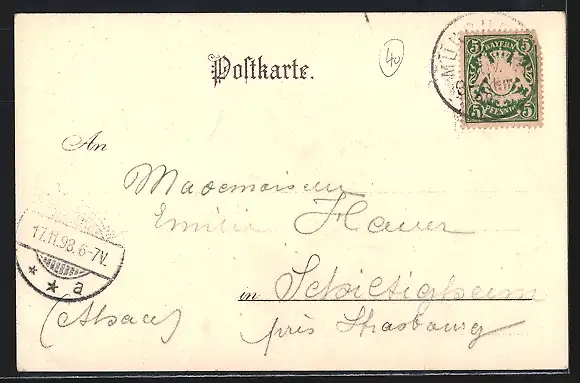 Postkarte.
40
5 BAYERN 5
5 PFENNIG 5
An
Mademoiselle
Emilie Hauer
in Schiltigheim
(Alsace) près Strasbourg
17.11.98.6-7V.
* * a